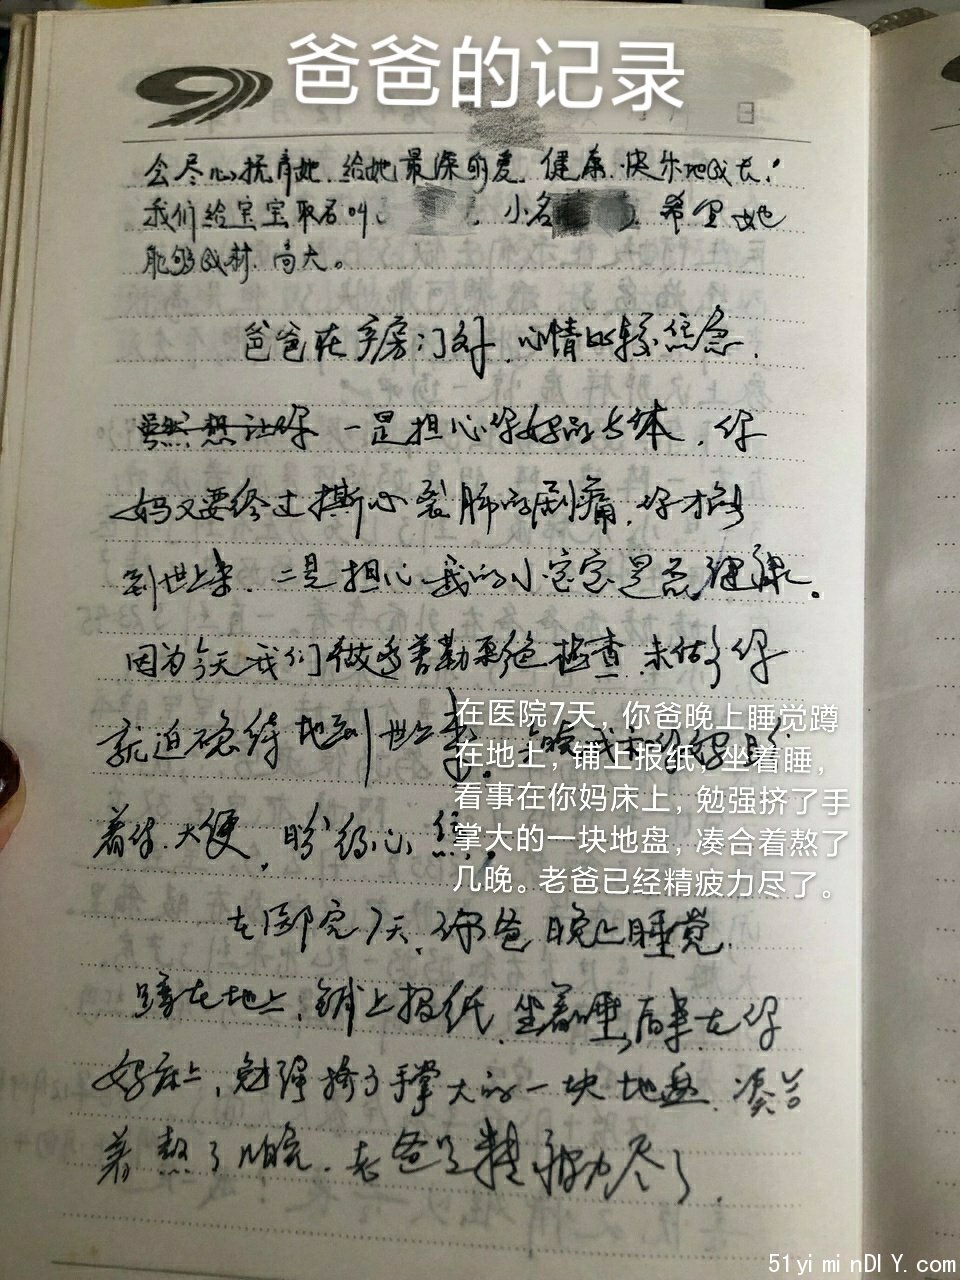 爸爸的记录
日
会尽心抚育她.给她最深的爱.健康.快乐地成长!
我们给宝宝取名叫 小名 希望她
能够成材.高大。
爸爸在产房门外,心情比较焦急.
一是担心你妈的身体.你
妈又要经过撕心裂肺的剧痛.你才能
到世上来.二是担心我的小宝宝是否健康。
因为今天我们做过普勒彩色检查.未好
你
就迫不急待地到世上来。
着你.大便.
在医院7天,你爸晚上睡觉蹲
在地上,铺上报纸,坐着睡,
看事在你妈床上,勉强挤了手
掌大的一块地盘,凑合着熬了
几晚。老爸已经精疲力尽了。
在医院7天.你爸晚上睡觉
蹲在地上,铺上报纸.坐着睡,后来在你
妈床上,勉强挤了手掌大的一块地盘.凑合
着熬了几晚.老爸已精疲力尽了.
51yiminDIY.com